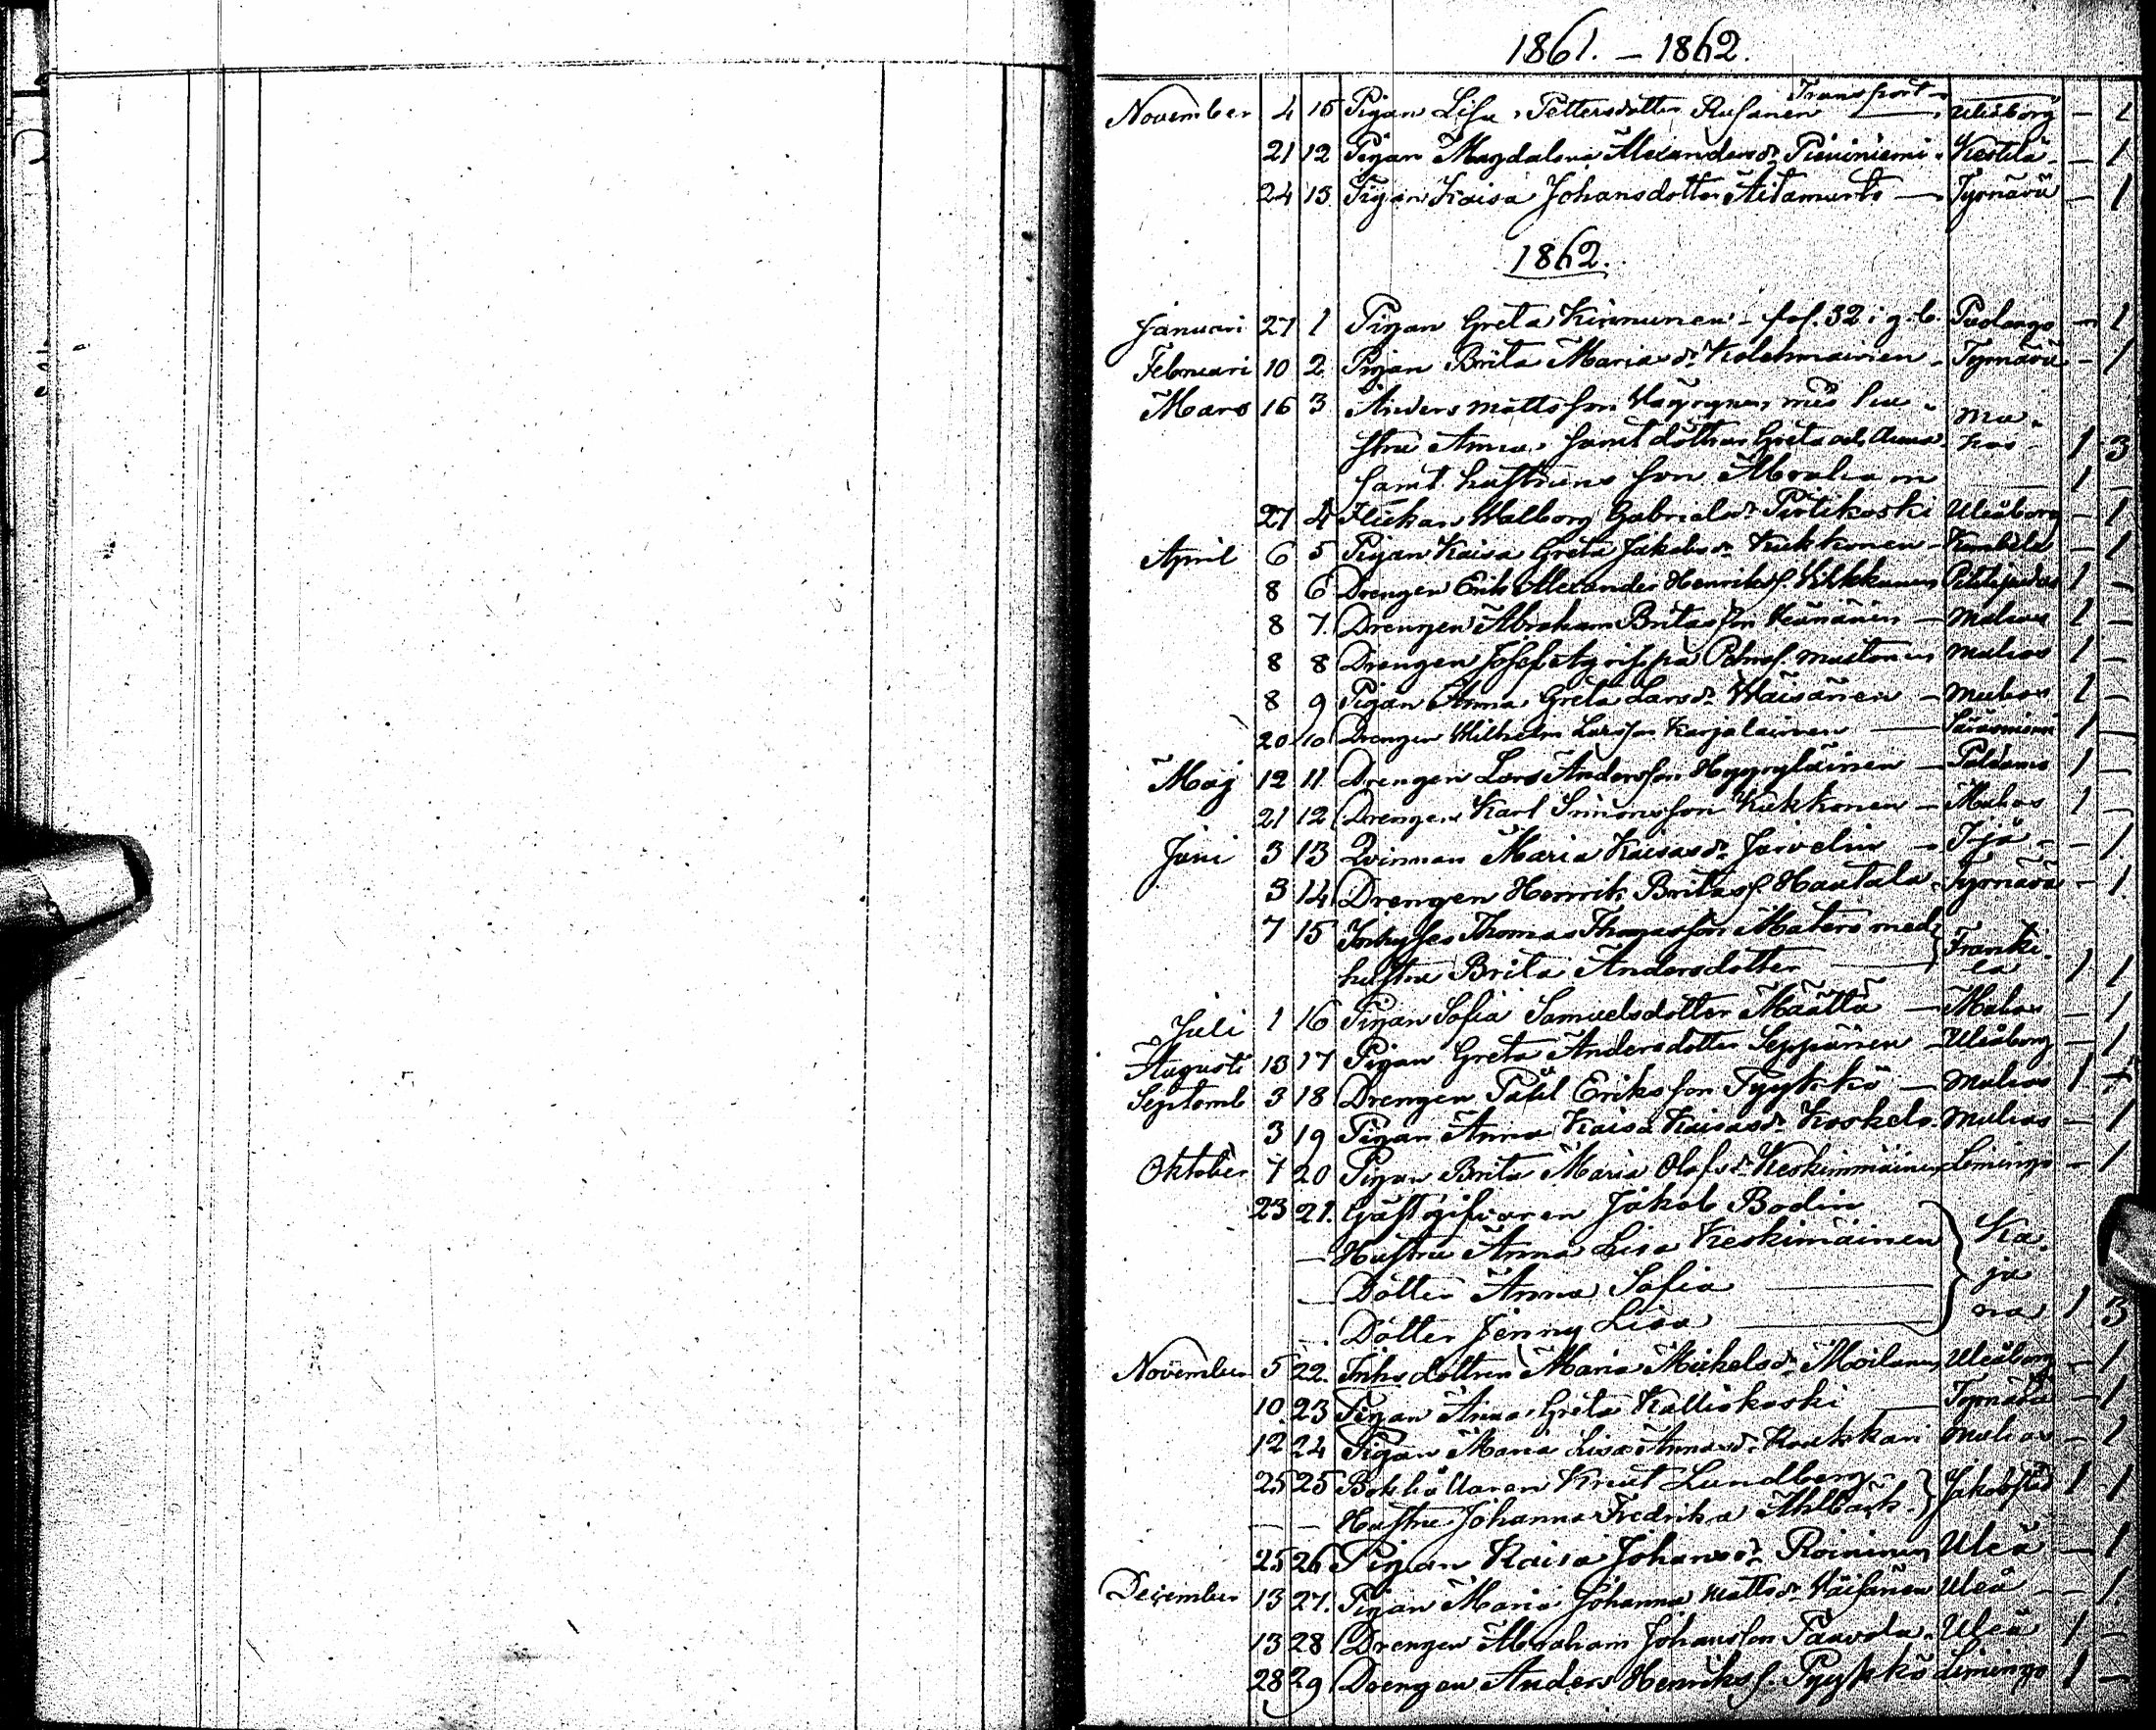 1861. – 1862.
Transport
November 4 15 Pigan Lisa Pettersdotter Rusanen — Uleåborg – 1
21 12 Pigan Magdalena Alexandersdr Pieniniemi Kestilä – 1
24 13 Pigan Kaisa Johansdotter Aitamurto — Tyrnävä – 1
1862.
Januari 27 1 Pigan Greta Kinnunen – fol. 32 i g. b. Pudango – 1
Februari 10 2 Pigan Brita Maria dr Kolehmainen – Tyrnävä – 1
Mars 16 3 Anders Mattsson Häyrynen med hu- Mu-
stru Anna, samt döttrar Greta och Anna hos 1 3
samt hustruns son Abraham — 1 –
27 4 Flickan Walborg Gabrielsdr Pirtikoski Uleåborg – 1
April 6 5 Pigan Kaisa Greta Jakobsdr Kukkonen – – 1
8 6 Drengen Erik Alexander Henriksf. Pikkarainen 1 –
8 7. Drengen Abraham Britasson Keränen — Muhos 1 –
8 8 Drengen Josef Agrippa Muhos 1 –
8 9 Pigan Anna Greta Larsdr Wäisänen — Muhos 1 –
20 10 Drengen Wilhelm Larsson Karjalainen — Säräisniemi 1 –
Maj 12 11 Drengen Lars Andersson Hyyryläinen — Paldamo 1 –
21 12 Drengen Karl Simonsson Kukkonen — Muhos 1 –
Juni 3 13 Qvinnan Maria Kaisasdr Järvelin — Ijo – – 1
3 14 Drengen Henrik Britasf Hautala – Tyrnävä – 1
7 15 Inhyses Thomas Thomasson Matero med } Frantsi-
hustru Brita Andersdotter — la 1 1
Juli 1 16 Pigan Sofia Samuelsdotter Määttä — Muhos – 1
Augusti 13 17 Pigan Greta Andersdotter Seppänen – Uleåborg – 1
Septemb 3 18 Drengen Påhl Eriksson Pyykkö — Muhos 1 –
3 19 Pigan Anna Kaisa Kaisasdr Koskelo Muhos – 1
Oktober 7 20 Pigan Brita Maria Olofsdr Keskimmäinen Limingo – 1
23 21. Gästgifvaren Jakob Bodin
— Hustru Anna Lisa Keskimäinen } Ka-
— Dotter Anna Sofia — ja
— Dotter Jenny Lisa — na 1 3
November 5 22. Inhs dottren Maria Mickelsdr Moilanen Uleåborg – 1
10 23 Pigan Anna Greta Kalliokoski — Tyrnävä – 1
12 24 Pigan Maria Lisa Annasdr Koukkari Muhos – 1
25 25 Bokhållaren Knut Lundberg – } Jakobstad 1 1
— — Hustru Johanna Fredrika Ahlbäck
25 26 Pigan Kaisa Johansdr Roininen Uleå – 1
December 13 27. Pigan Maria Johanna Mattsdr Väisänen Uleå – – 1
13 28 Drengen Abraham Johansson Paavola – Uleå 1 –
28 29 Drengen Anders Henriksf. Pyykkö Limingo 1 –